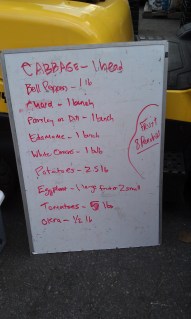 CABBAGE - 1 head
Bell Peppers - 1 lb
Chard - 1 bunch
Parsley or Dill - 1 bunch
Edamame - 1 bunch
White Onions - 1 bulb
Potatoes - 2.5 lb
Eggplant - 1 large
Tomatoes - 5 lbs
Okra - 1/2 lb